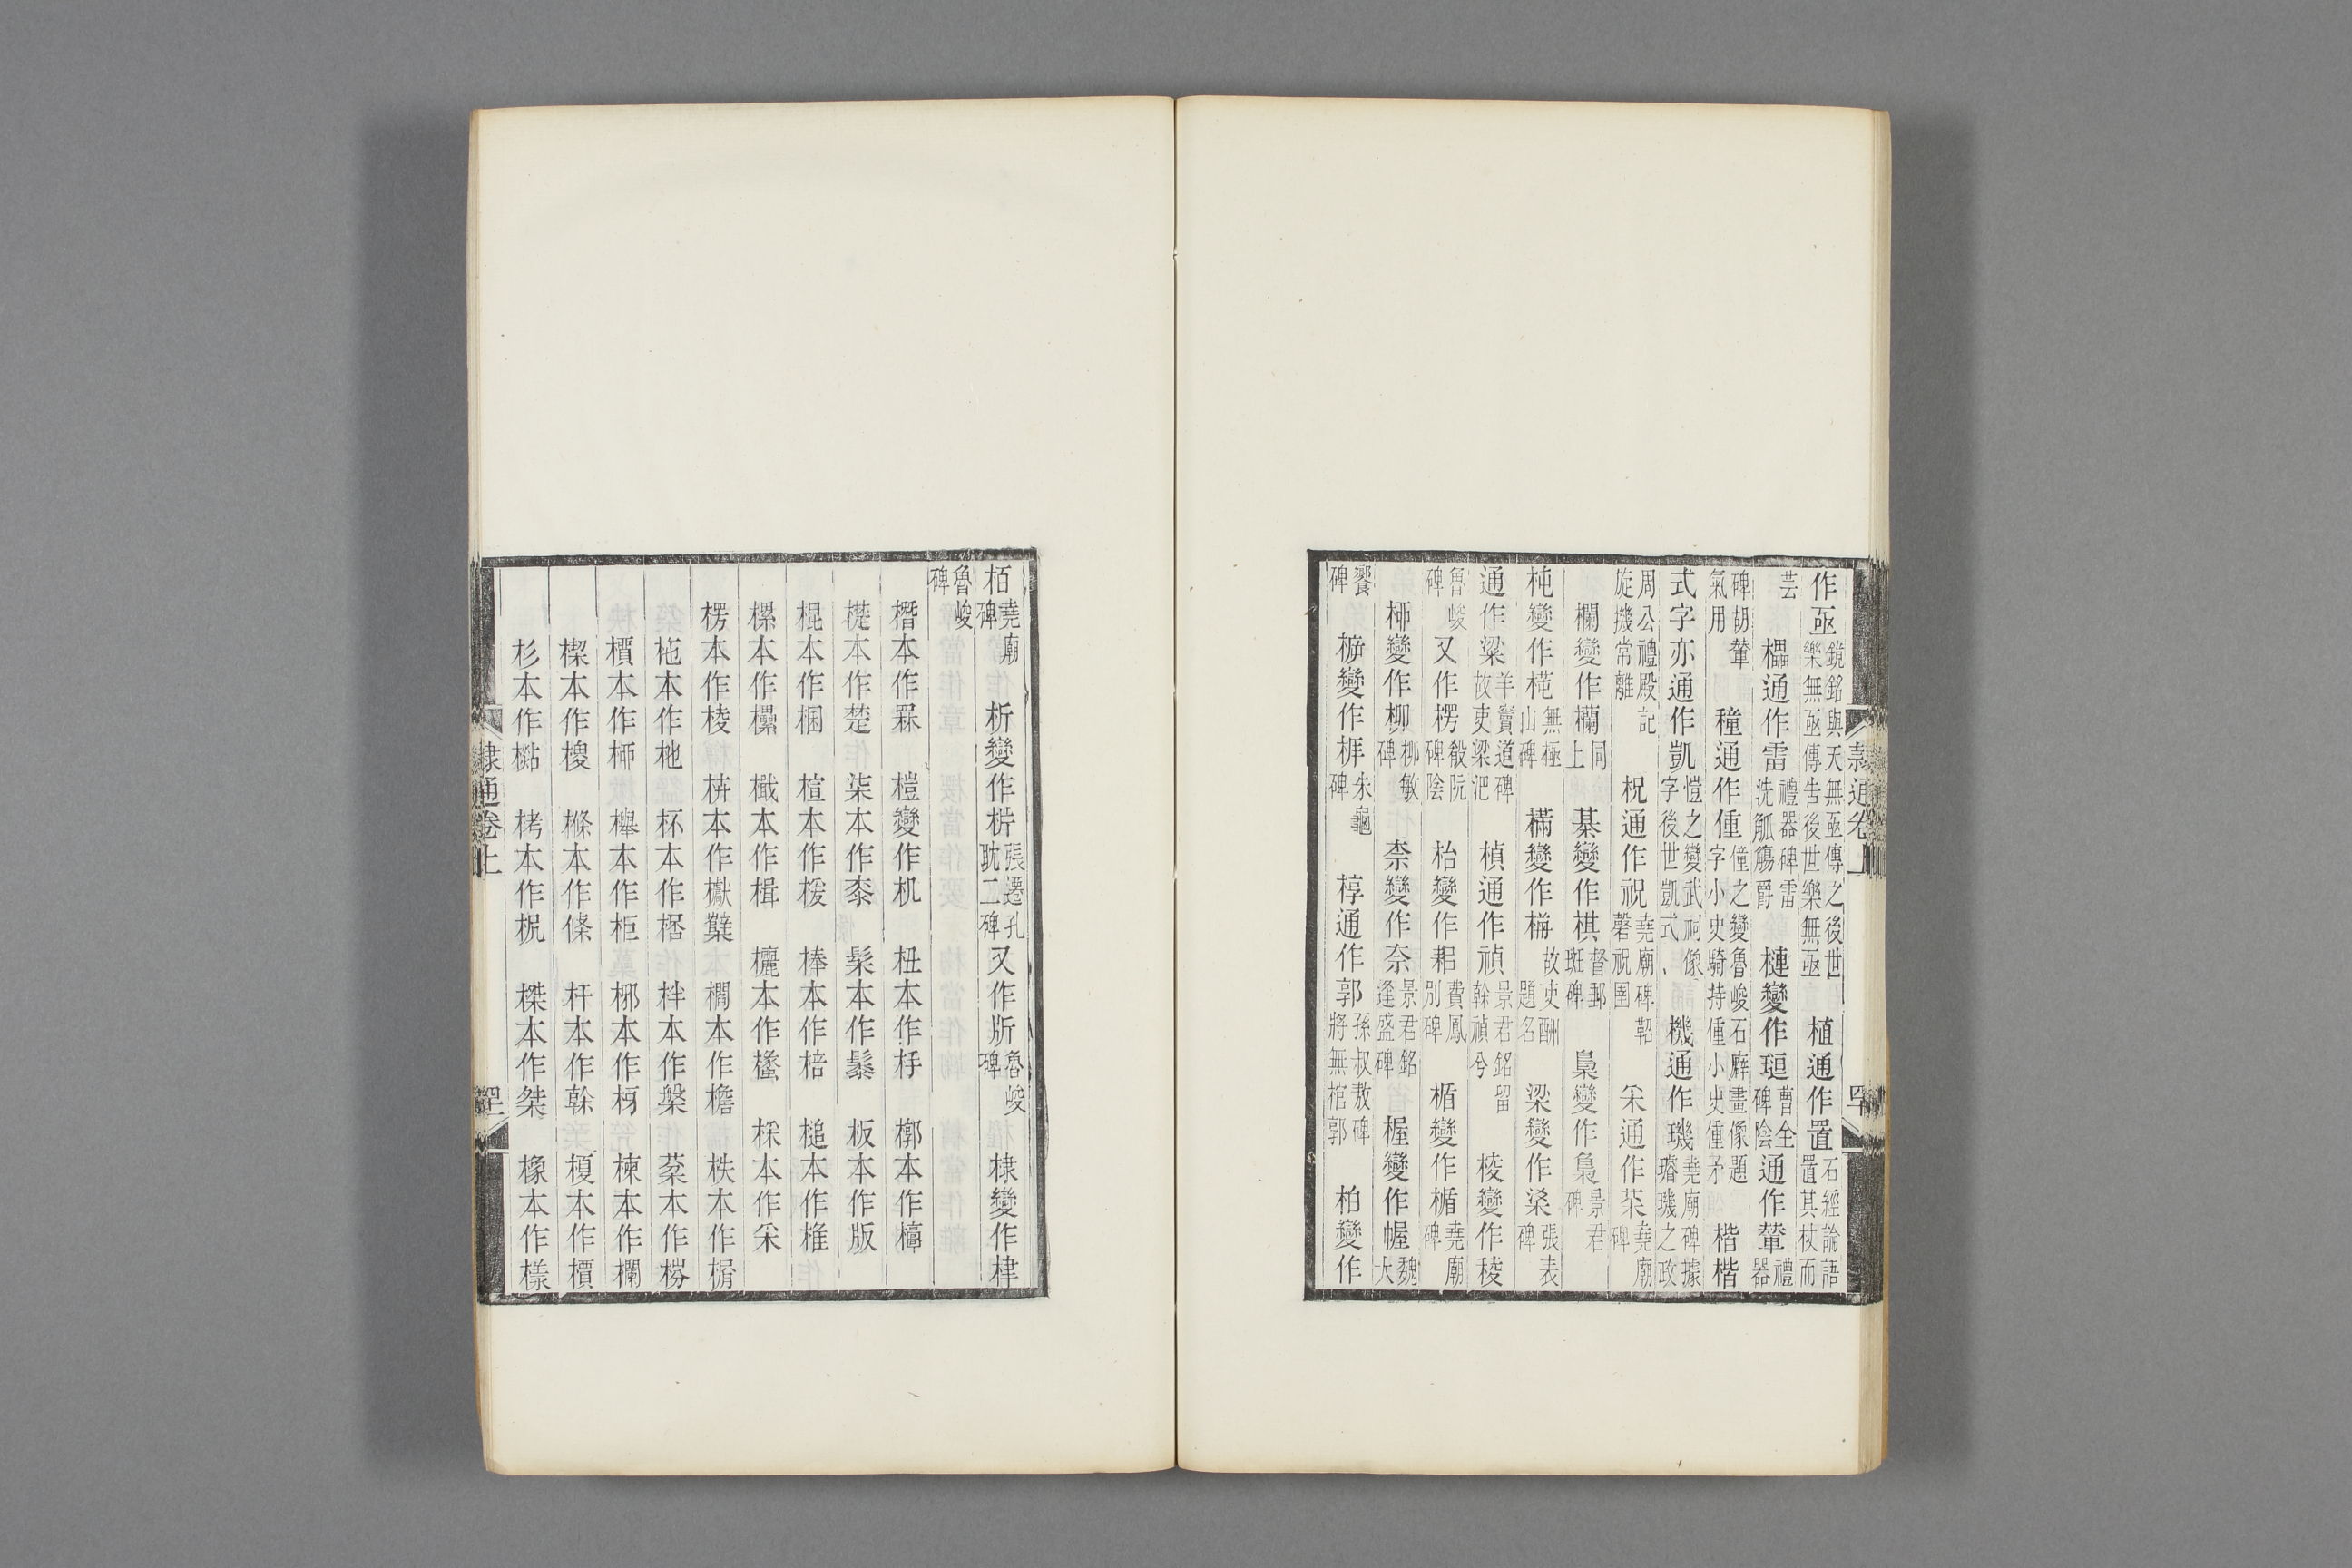 作亟鏡銘與天無亟傳之後世樂無亟傳告後世樂無亟 植通作置石經論語置其杖而
芸 櫑通作雷禮器碑雷洗觚觴爵 槤變作瑚曹全碑陰通作輦禮器
碑胡輦氣用 穜通作偅僮之變魯峻石廦畫像題字小史騎持偅小史偅矛 楷楷
式字亦通作凱愷之變武祠像字後世凱式 機通作璣堯廟碑據璿璣之政
周公禮殿記旋機常離 柷通作祝堯廟碑鞀磬祝圉 采通作菜堯廟碑
欄變作欗同上 棊變作棋督郵班碑 梟變作梟景君碑
杶變作無極山碑 故吏酬題名 梁變作張表碑
通作梁羊竇道碑故吏梁汜 楨通作禎景君銘榦禎兮留 棱變作稜
魯峻碑又作楞殽阮碑陰 枱變作耜費鳳別碑 楯變作楯堯廟碑
桺變作柳柳敏碑 柰變作奈景君銘逢盛碑 楃變作幄魏大
饗碑 變作朱龜碑 椁通作郭孫叔敖碑將無棺郭 柏變作
栢堯廟碑 析變作枿張遷孔耽二碑又作斨魯峻碑 棣變作
魯峻碑
榰本作 榿變作机 杻本作杽 槨本作
椘本作楚 柒本作桼 髤本作 板本作版
棍本作梱 楦本作楥 棒本作棓 槌本作椎
樏本作欙 檝本作楫 欐本作 棌本作采
楞本作棱 栟本作 櫩本作檐 柣本作榍
柂本作杝 杯本作桮 柈本作槃 棻本作梤
櫃本作 櫸本作柜 梛本作枒 楝本作欄
楔本作 樤本作條 杆本作榦 榎本作檟
杉本作 栲本作 榤本作桀 橡本作樣
隸通卷上